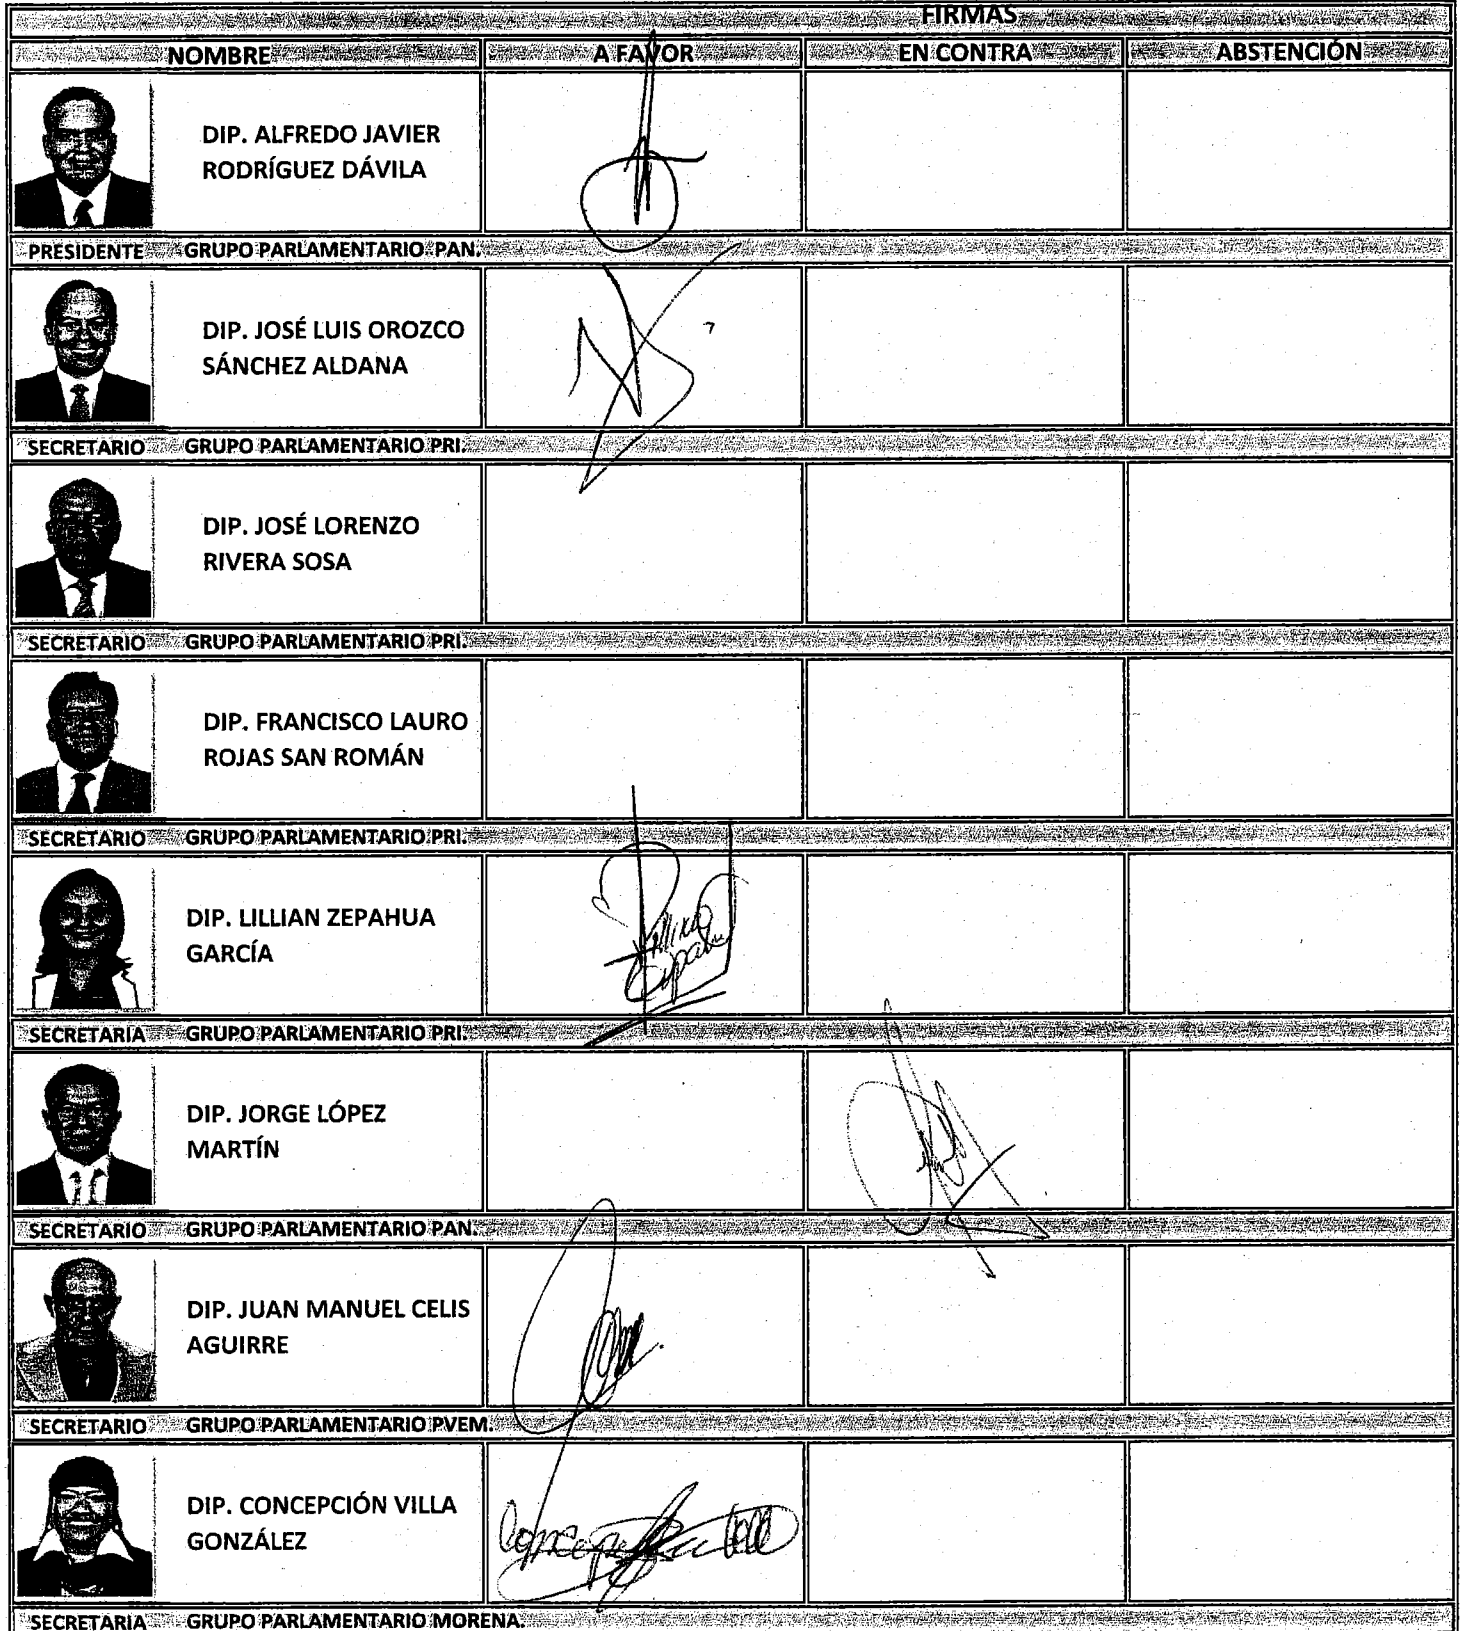 FIRMAS
NOMBRE A FAVOR EN CONTRA ABSTENCIÓN
DIP. ALFREDO JAVIER
RODRÍGUEZ DÁVILA
PRESIDENTE GRUPO PARLAMENTARIO PAN.
DIP. JOSÉ LUIS OROZCO
SÁNCHEZ ALDANA
SECRETARIO GRUPO PARLAMENTARIO PRI.
DIP. JOSÉ LORENZO
RIVERA SOSA
SECRETARIO GRUPO PARLAMENTARIO PRI.
DIP. FRANCISCO LAURO
ROJAS SAN ROMÁN
SECRETARIO GRUPO PARLAMENTARIO PRI.
DIP. LILLIAN ZEPAHUA
GARCÍA
SECRETARIA GRUPO PARLAMENTARIO PRI.
DIP. JORGE LÓPEZ
MARTÍN
SECRETARIO GRUPO PARLAMENTARIO PAN.
DIP. JUAN MANUEL CELIS
AGUIRRE
SECRETARIO GRUPO PARLAMENTARIO PVEM.
DIP. CONCEPCIÓN VILLA
GONZÁLEZ
SECRETARIA GRUPO PARLAMENTARIO MORENA.